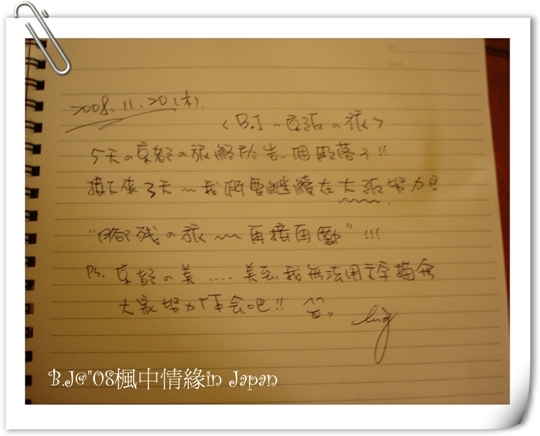 2008.11.20(木).
<B.J～京阪の旅>
5天の京都の旅終於告一個段落了!!
接下來3天～我們要繼續在大阪努力
"腳残の旅～再接再厲"!!!
PS. 京都の美....美到我無法用文字描繪
大家努力体会吧!! ^^
B.J@"08楓中情緣in Japan